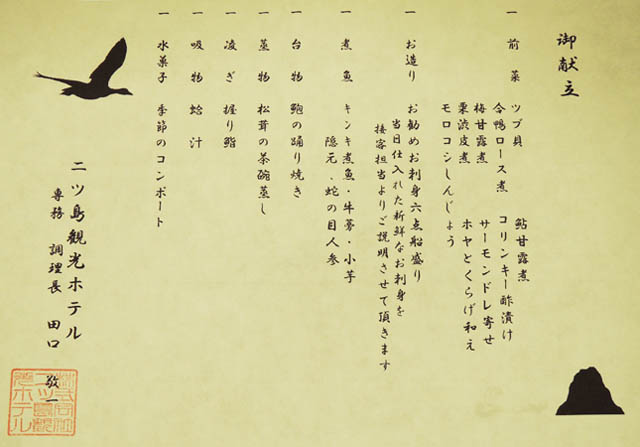 御献立
一 前菜 ツブ貝 鮎甘露煮
合鴨ロース煮 コリンキー酢漬け
梅甘露煮 サーモンドレ寄せ
栗渋皮煮 ホヤとくらげ和え
モロコシしんじょう
一 お造り お勧めお刺身六点船盛り
当日仕入れた新鮮なお刺身を
接客担当よりご説明させて頂きます
一 煮魚 キンキ煮魚・牛蒡・小芋
隠元、蛇の目人参
一 台物 鮑の踊り焼き
一 蒸物 松茸の茶碗蒸し
一 凌ぎ 握り鮨
一 吸物 蛤汁
一 水菓子 季節のコンポート
二ツ島観光ホテル
専務 調理長 田口 敬一